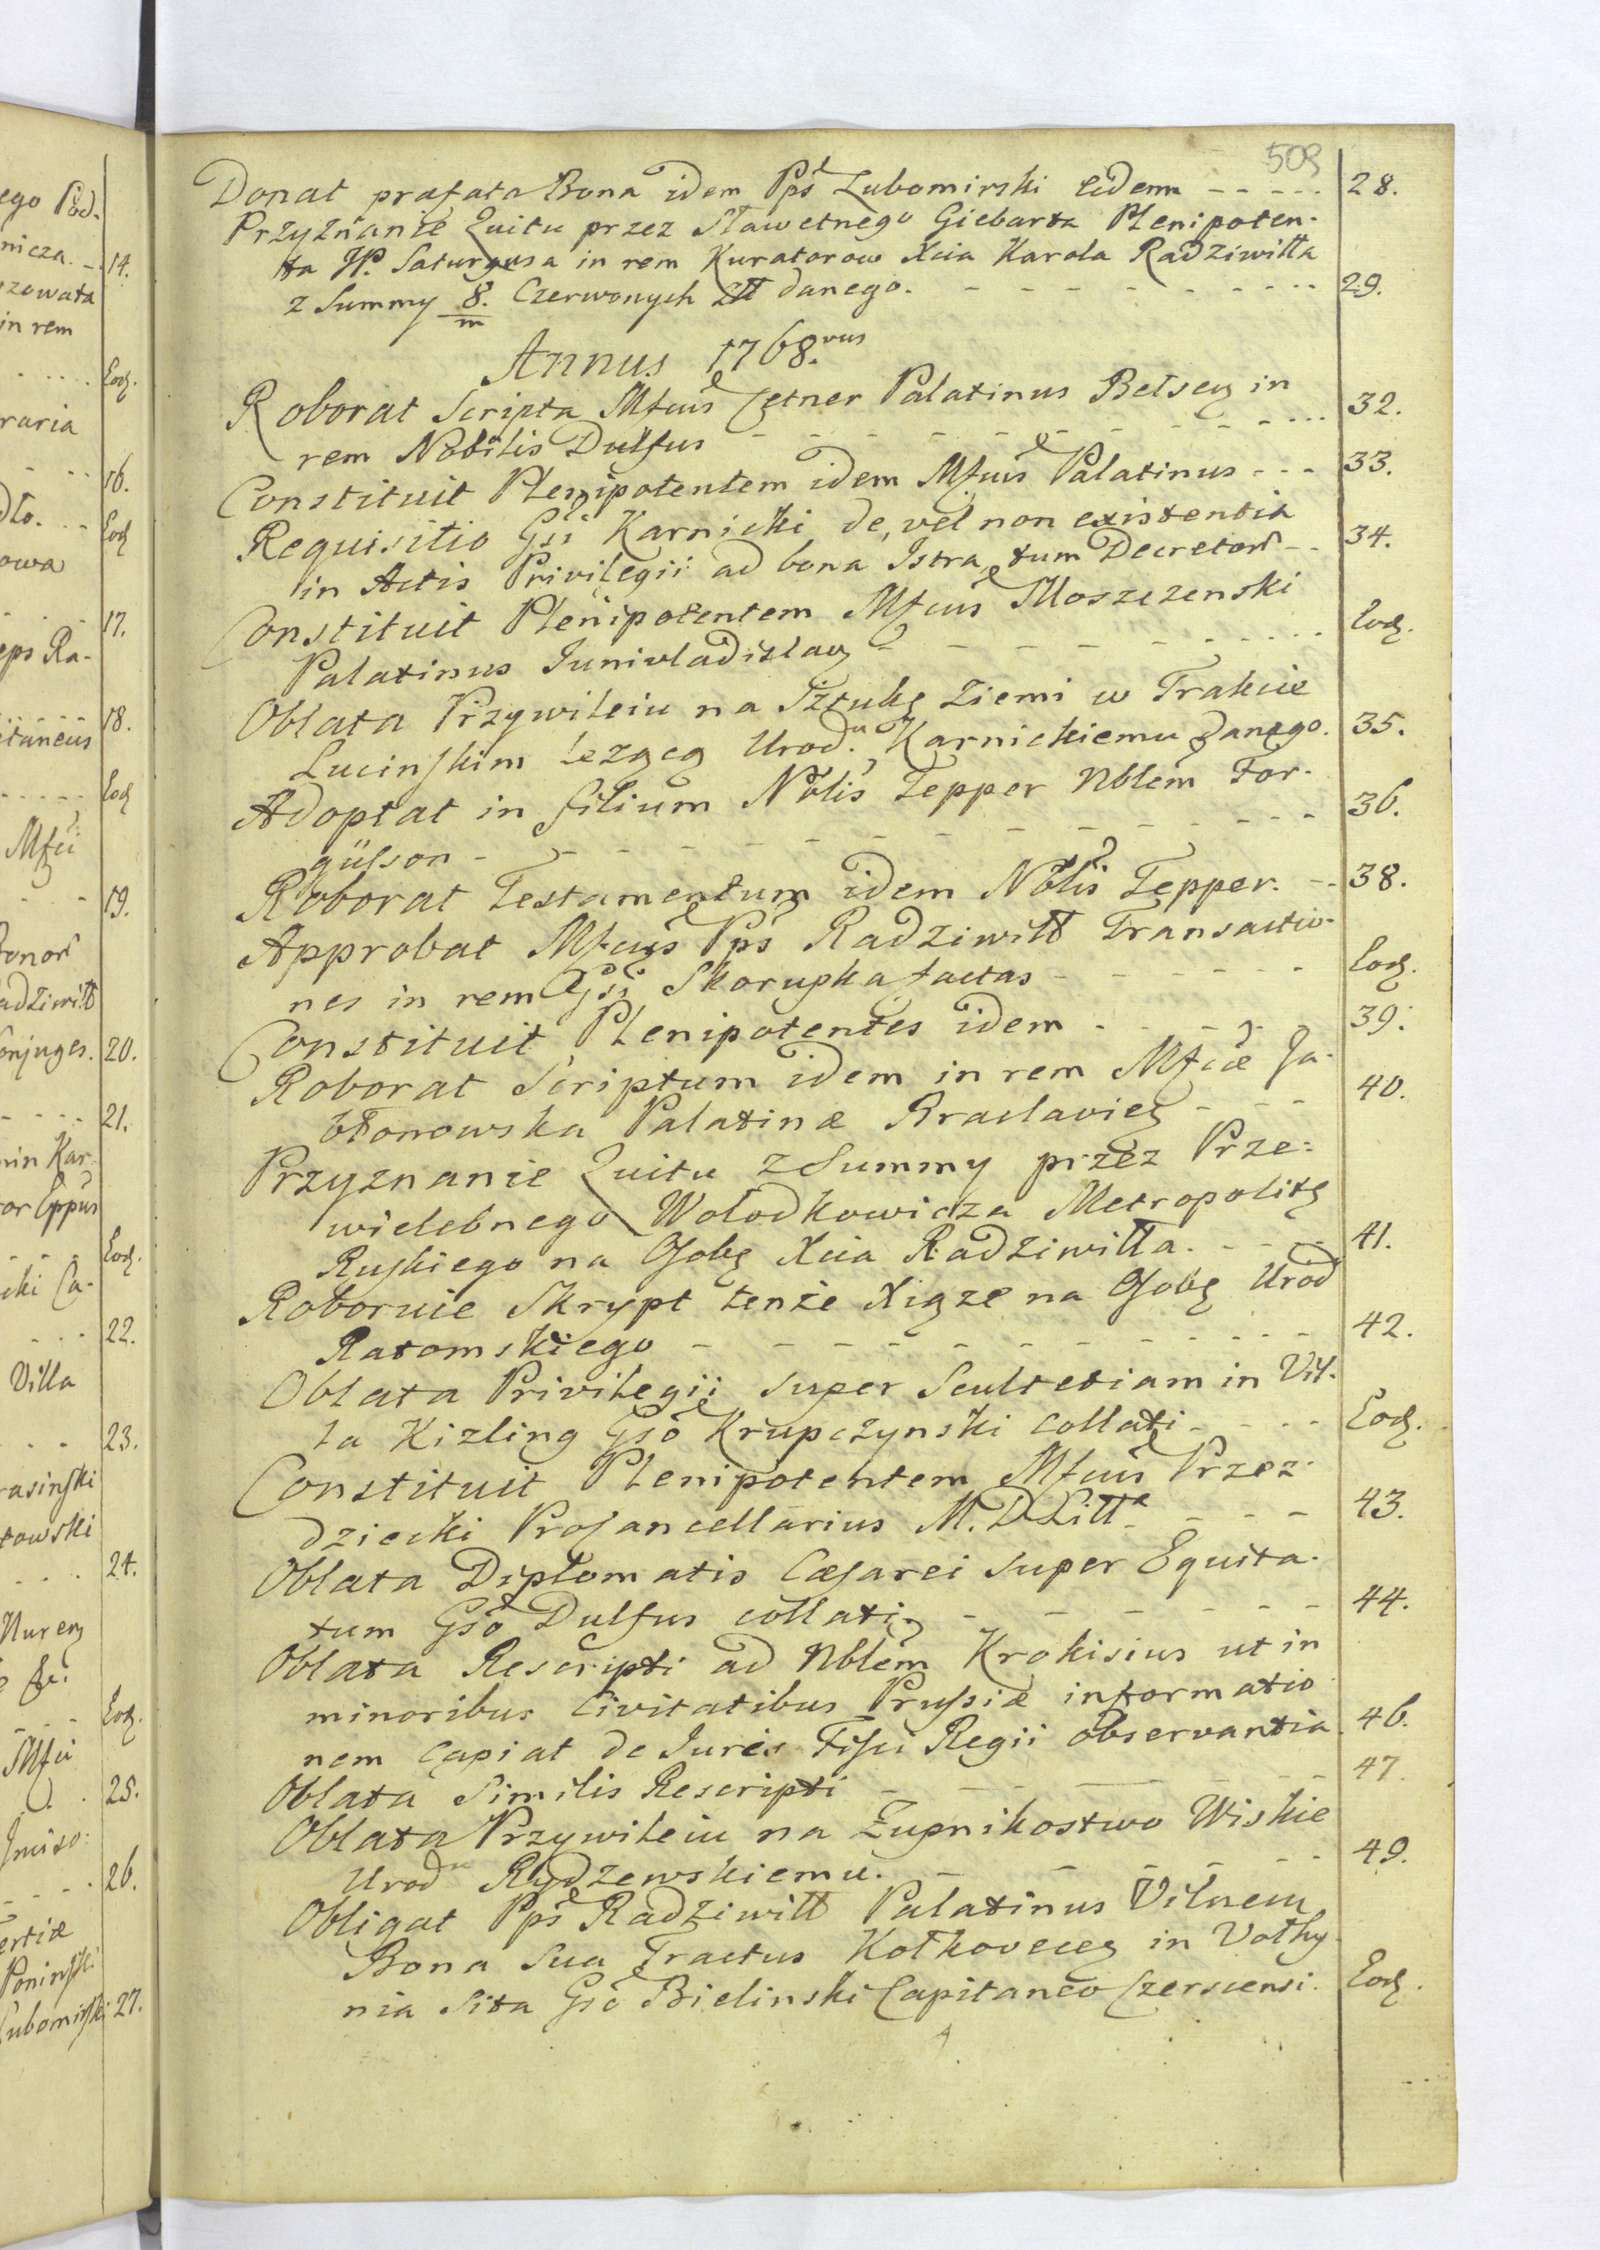 509
Donat præfata Bona idem Pps Lubomirski eidem - - - - - 28.
Przyznanie Quitu przez Sławetnego Giebarta Plenipoten-
ta JP. Saturgusa in rem Kuratorow Xcia Karola Radziwiłła
z Summy 8/m Czerwonych Złł danego. - - - - - 29.
Annus 1768.vus
Roborat Scripta Mfcus Cetner Palatinus Belsen in
rem Nobilis Dulfus - - - - - 32.
Constituit Plenipotentem idem Mfcus Palatinus - - - 33.
Requisitio Gsi Karnicki de, vel non existentia
in Actis Privilegii ad bona Istra, tum Decretor - - 34.
Constituit Plenipotentem Mfcus Moszczenski
Palatinus Junivladislav - - - - - Eod.
Oblata Przywileiu na Sztukę Ziemi w Trakcie
Lucinskim leżącą Urod.u Karnickiemu danego. 35.
Adoptat in filium Nolis Tepper Nblem For-
güsson - - - - - 36.
Roborat Testamentum idem Nolis Tepper. - - 38.
Approbat Mfcus Pps Radziwiłł Transactio-
nes in rem Gsi Skorupka factas - - - - - Eod.
Constituit Plenipotentes idem - - - - - 39.
Roborat Scriptum idem in rem Mfcæ Ja-
błonowska Palatinæ Braclavien - - - 40.
Przyznanie Quitu z Summy przez Prze-
wielebnego Wołodkowicza Metropolitę
Ruskiego na Osobę Xcia Radziwiłła. - - - - 41.
Roboruie Skrypt tenże Xiąze na Osobę Urod
Ratomskiego - - - - - 42.
Oblata Privilegii super Scultetiam in Vil-
la Kizling Gso Krupczynski collati - - - - Eod.
Constituit Plenipotentem Mfcus Przez-
dziecki Procancellarius M. D Litt - - - - 43.
Oblata Diplomatis Cæsarei super Equita-
tum Gso Dulfus collati - - - - - 44.
Oblata Rescripti ad Nblem Krokisius ut in
minoribus Civitatibus Prussiæ informatio
nem capiat de Juris Fisci Regii observantia 46.
Oblata Similis Rescripti - - - - - 47.
Oblata Przywileiu na Zupnikostwo Wiskie
Urodu Rydzewskiemu. - - - - - 49.
Obligat Pps Radziwiłł Palatinus Vilnen
Bona sua Tractus Kołkovecen in Volhy
nia sita Gso Bielinski Capitaneo Czersiensi. Eod.
14.
in rem
Eod.
16.
Eod
17.
18.
Eod
Mfci
19.
20.
21.
Eod.
22.
Villa
23.
24.
Eod.
Mfci
25.
26.
27.